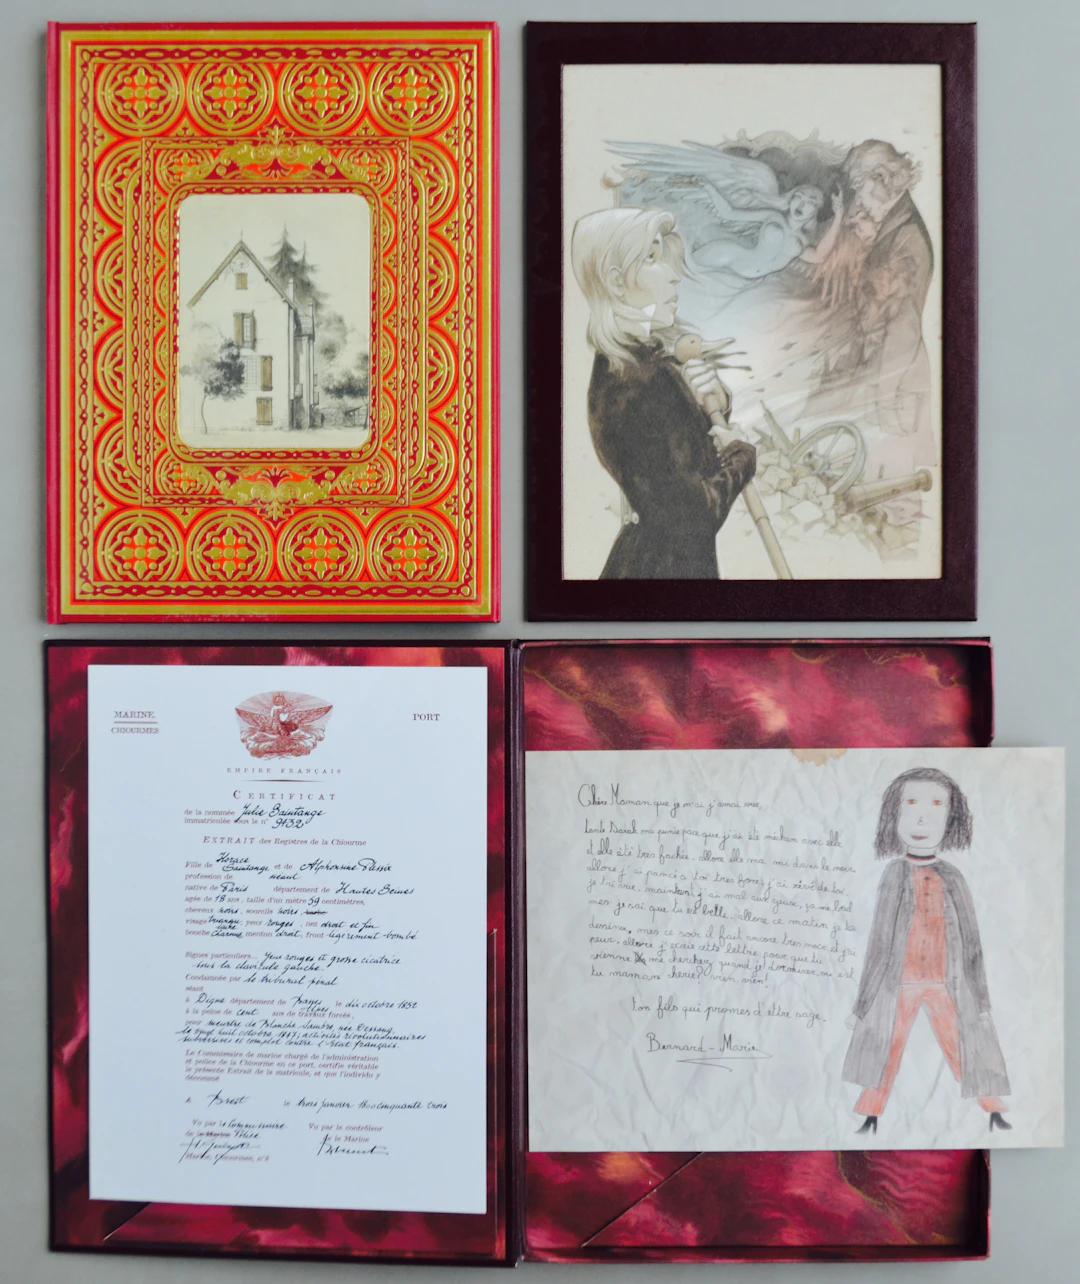 MARINE.
CHIOURMES
PORT
EMPIRE FRANÇAIS
CERTIFICAT
de la nommée Julie Saintange
immatriculée sous le n° 9132
EXTRAIT des Registres de la Chiourme
Fille de Horace Saintange et de Alphonsine
profession de néant
native de Paris département de Hautes Seines
agée de 18 ans, taille d'un mètre 59 centimètres,
cheveux noirs, sourcils noirs
visage triangulaire, yeux rouges, nez droit et fin
bouche charnue, menton droit, front légèrement bombé
Signes particuliers... Yeux rouges et grosse cicatrice
sous la clavicule gauche.
Condamnée par le tribunal pénal
séant
à Digne département de Basses Alpes le dix octobre 1852
à la peine de cent ans de travaux forcés,
pour meurtre de Blanche Sambre, née Dessang,
le vingt huit octobre, 1847; activités révolutionnaires
subversives et complot contre l'état français.
Le Commissaire de marine chargé de l'administration
et police de la Chiourme en ce port, certifie véritable
le présente Extrait de la matricule, et que l'individu y
dénommé
A Brest le trois janvier 1800cinquante trois
Vu par le Commissaire Vu par le contrôleur
de la Marine Police de la Marine
Marine, Chiourmes, n°8
Chère Maman que je n'ai j'amai vue,
tante Sarah ma punie parce que j'ai été méchan avec elle
et elle été très fachée. allore elle ma mi dans le noir.
allore j'ai pancé a toi très fore, j'ai rêvé de toi.
je t'ai vue. maintenant j'ai mal aux yeux, ça me brul
mes je sai que tu es belle. allore ce matin je te
dessine. mes ce soir il fait ancore très noir et j'ai
peur, allore j'ecrie cette lettre pour que tu
vienne me chercher, quand je dormirer. ou est
tu maman chérie? vien, vien!
ton fils qui promes d'être sage.
Bernard-Marie